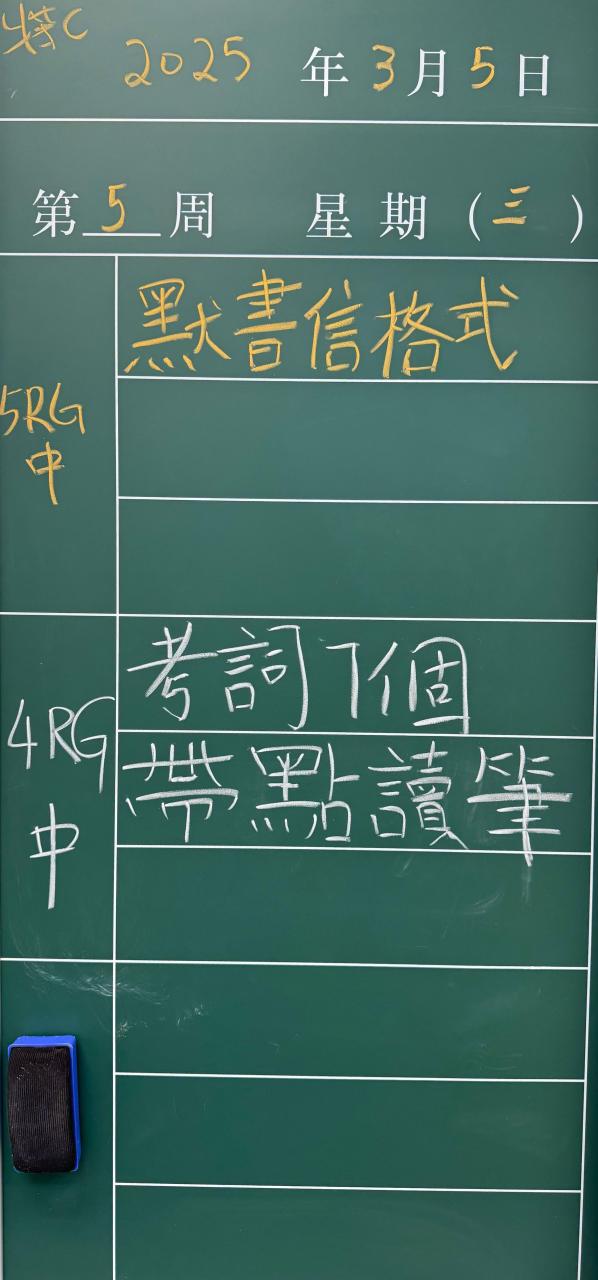 4特C
2025 年 3 月 5 日
第 5 周 星期 (三)
默書信格式
5RG
中
考詞7個
帶點讀筆
4RG
中